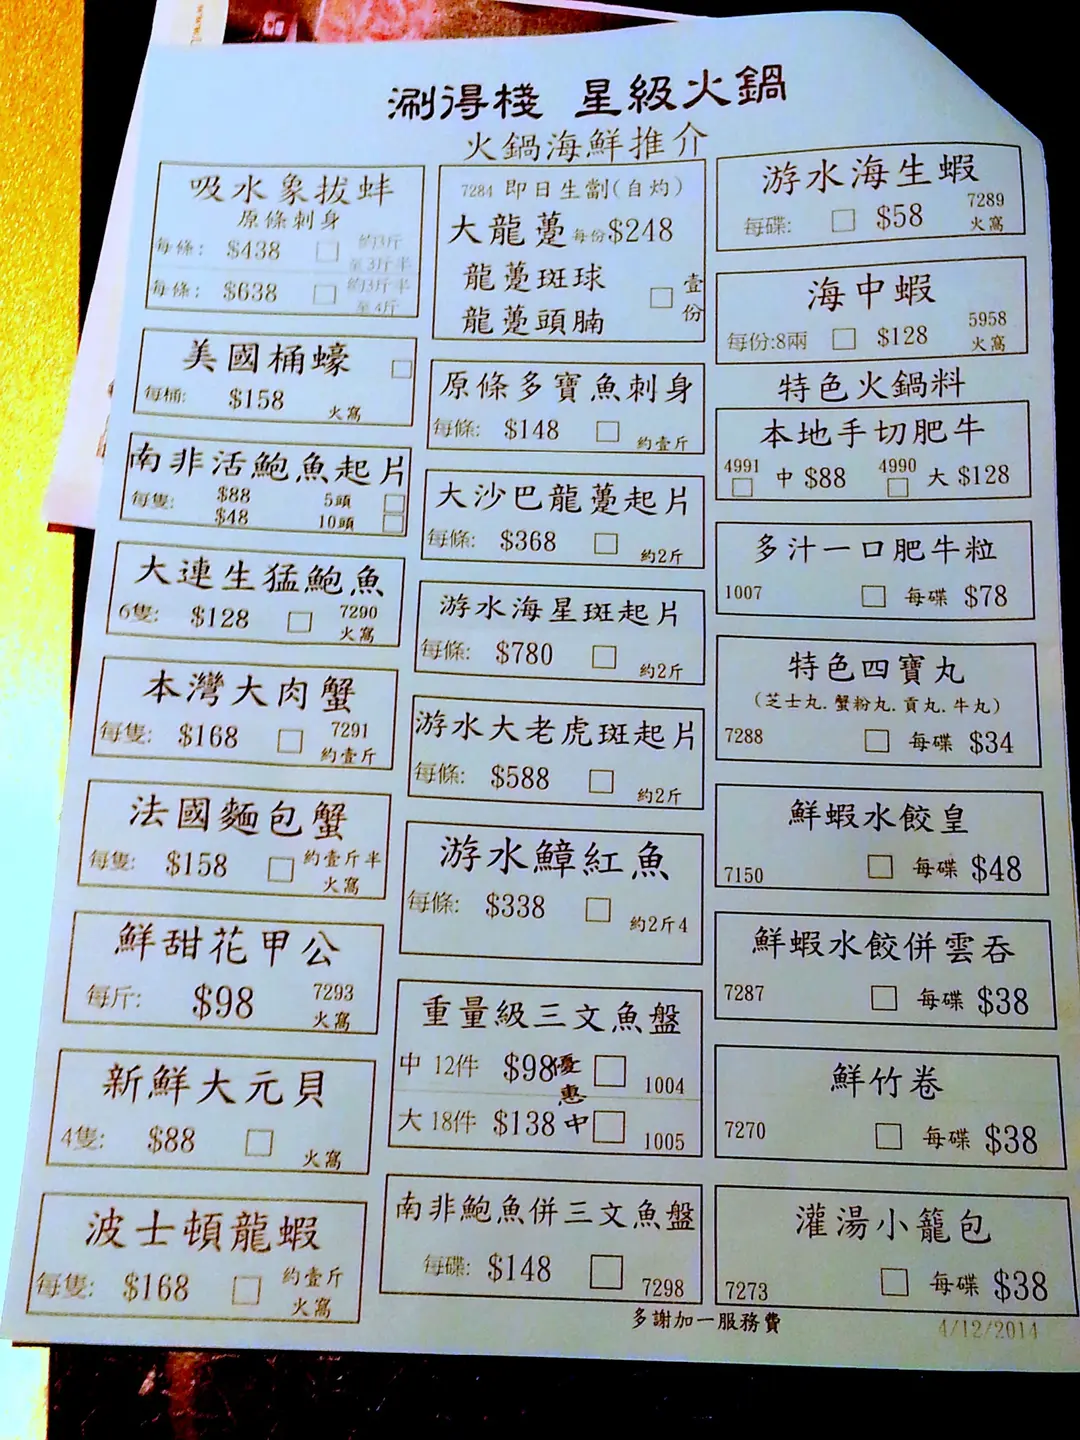 涮得棧 星級火鍋
火鍋海鮮推介
吸水象拔蚌
原條刺身
每條: $438 □ 約3斤
至3斤半
每條: $638 □ 約3斤半
至4斤
美國桶蠔 □
每桶: $158 火窩
南非活鮑魚起片
每隻: $88 5頭 □
$48 10頭 □
大連生猛鮑魚
6隻: $128 □ 7290
火窩
本灣大肉蟹
每隻: $168 □ 7291
約壹斤
法國麵包蟹
每隻: $158 □ 約壹斤半
火窩
鮮甜花甲公
每斤: $98 7293
火窩
新鮮大元貝
4隻: $88 □ 火窩
波士頓龍蝦
每隻: $168 □ 約壹斤
火窩
7284 即日生劏(自灼)
大龍躉 每份$248
龍躉斑球
龍躉頭腩
□ 壹份
原條多寶魚刺身
每條: $148 □ 約壹斤
大沙巴龍躉起片
每條: $368 □ 約2斤
游水海星斑起片
每條: $780 □ 約2斤
游水大老虎斑起片
每條: $588 □ 約2斤
游水鱆紅魚
每條: $338 □ 約2斤4
重量級三文魚盤
中 12件 $98 □ 1004
優惠中
大 18件 $138 □ 1005
南非鮑魚併三文魚盤
每碟: $148 □ 7298
游水海生蝦
每碟: □ $58 7289
火窩
海中蝦
每份:8兩 □ $128 5958
火窩
特色火鍋料
本地手切肥牛
4991 □ 中 $88 4990 □ 大 $128
多汁一口肥牛粒
1007 □ 每碟 $78
特色四寶丸
(芝士丸.蟹粉丸.貢丸.牛丸)
7288 □ 每碟 $34
鮮蝦水餃皇
7150 □ 每碟 $48
鮮蝦水餃併雲吞
7287 □ 每碟 $38
鮮竹卷
7270 □ 每碟 $38
灌湯小籠包
7273 □ 每碟 $38
多謝加一服務費
4/12/2014